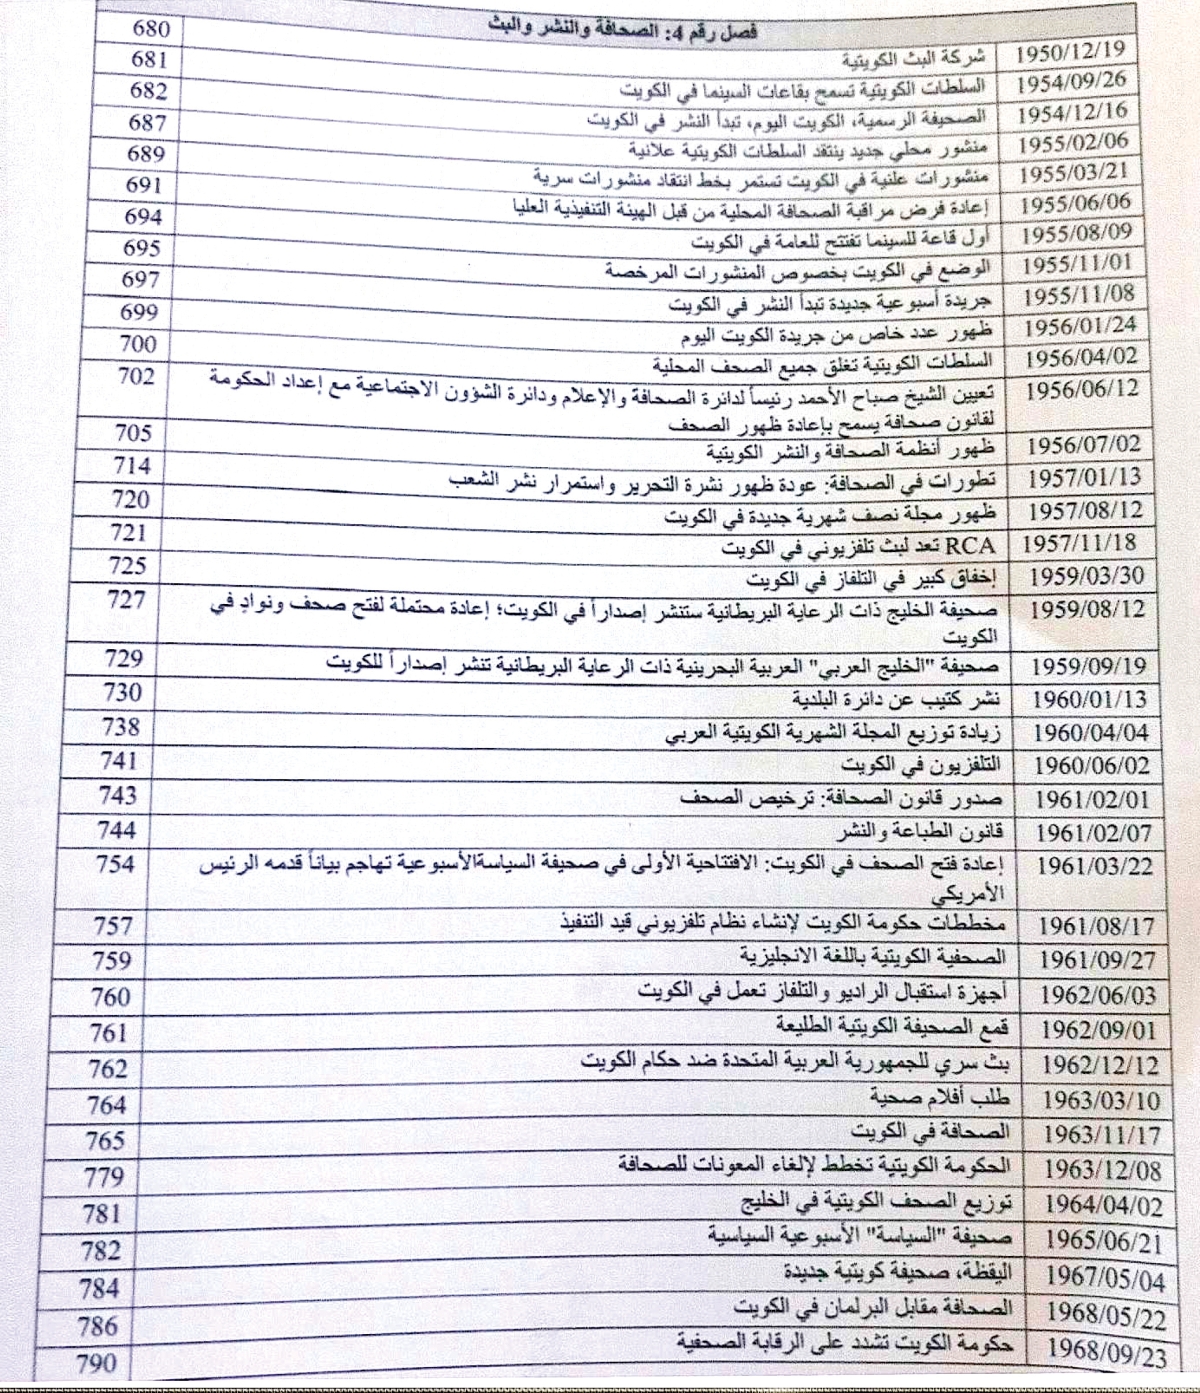 فصل رقم 4: الصحافة والنشر والبث
1950/12/19 شركة البث الكويتية 680
1954/09/26 السلطات الكويتية تسمح بقاعات السينما في الكويت 681
1954/12/16 الصحيفة الرسمية، الكويت اليوم، تبدأ النشر في الكويت 682
1955/02/06 منشور محلي جديد ينتقد السلطات الكويتية علانية 687
1955/03/21 منشورات علنية في الكويت تستمر بخط انتقاد منشورات سرية 689
1955/06/06 إعادة فرض مراقبة الصحافة المحلية من قبل الهيئة التنفيذية العليا 691
1955/08/09 أول قاعة للسينما تفتتح للعامة في الكويت 694
1955/11/01 الوضع في الكويت بخصوص المنشورات المرخصة 695
1955/11/08 جريدة أسبوعية جديدة تبدأ النشر في الكويت 697
1956/01/24 ظهور عدد خاص من جريدة الكويت اليوم 699
1956/04/02 السلطات الكويتية تغلق جميع الصحف المحلية 700
1956/06/12 تعيين الشيخ صباح الأحمد رئيساً لدائرة الصحافة والإعلام ودائرة الشؤون الاجتماعية مع إعداد الحكومة 702
لقانون صحافة يسمح بإعادة ظهور الصحف
1956/07/02 ظهور أنظمة الصحافة والنشر الكويتية 705
1957/01/13 تطورات في الصحافة: عودة ظهور نشرة التحرير واستمرار نشر الشعب 714
1957/08/12 ظهور مجلة نصف شهرية جديدة في الكويت 720
1957/11/18 RCA تعد لبث تلفزيوني في الكويت 721
1959/03/30 إخفاق كبير في التلفاز في الكويت 725
1959/08/12 صحيفة الخليج ذات الرعاية البريطانية ستنشر إصداراً في الكويت؛ إعادة محتملة لفتح صحف ونوادٍ في 727
الكويت
1959/09/19 صحيفة "الخليج العربي" العربية البحرينية ذات الرعاية البريطانية تنشر إصداراً للكويت 729
1960/01/13 نشر كتيب عن دائرة البلدية 730
1960/04/04 زيادة توزيع المجلة الشهرية الكويتية العربي 738
1960/06/02 التلفزيون في الكويت 741
1961/02/01 صدور قانون الصحافة: ترخيص الصحف 743
1961/02/07 قانون الطباعة والنشر 744
1961/03/22 إعادة فتح الصحف في الكويت: الافتتاحية الأولى في صحيفة السياسةالأسبوعية تهاجم بياناً قدمه الرئيس 754
الأمريكي
1961/08/17 مخططات حكومة الكويت لإنشاء نظام تلفزيوني قيد التنفيذ 757
1961/09/27 الصحفية الكويتية باللغة الانجليزية 759
1962/06/03 أجهزة استقبال الراديو والتلفاز تعمل في الكويت 760
1962/09/01 قمع الصحيفة الكويتية الطليعة 761
1962/12/12 بث سري للجمهورية العربية المتحدة ضد حكام الكويت 762
1963/03/10 طلب أفلام صحية 764
1963/11/17 الصحافة في الكويت 765
1963/12/08 الحكومة الكويتية تخطط لإلغاء المعونات للصحافة 779
1964/04/02 توزيع الصحف الكويتية في الخليج 781
1965/06/21 صحيفة "السياسة" الأسبوعية السياسية 782
1967/05/04 اليقظة، صحيفة كويتية جديدة 784
1968/05/22 الصحافة مقابل البرلمان في الكويت 786
1968/09/23 حكومة الكويت تشدد على الرقابة الصحفية 790